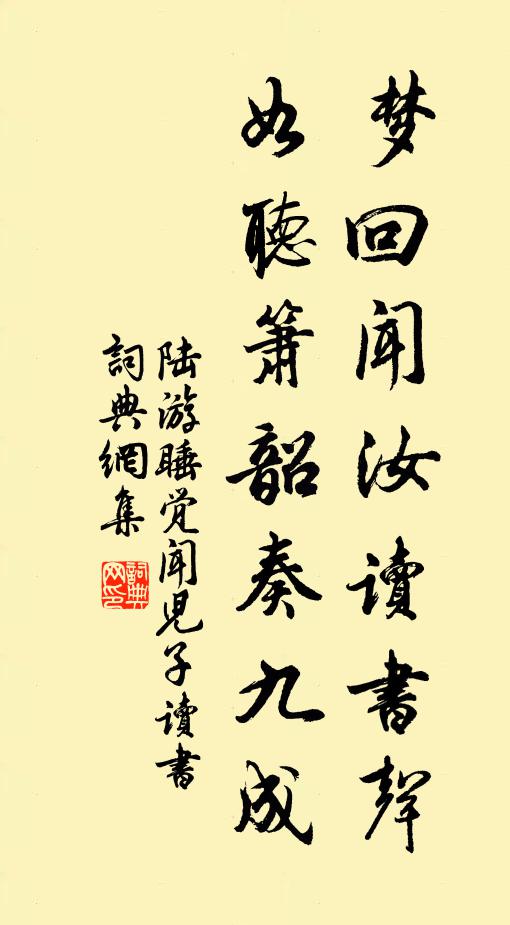 梦回闻汝读書聲
如聽箫韶奏九成
陆游睡觉闻児子读書
詞典網集
詞典网印